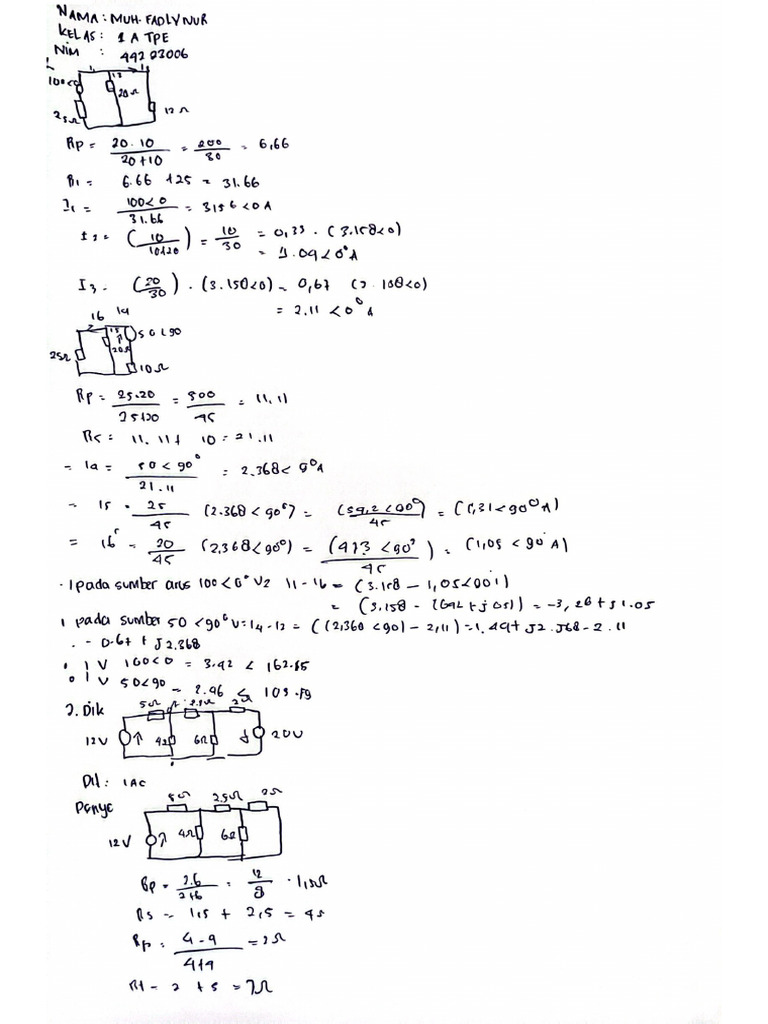 NAMA : MUH. FADLY NUR
KELAS : 1 A TPE
NIM : 44203006
100<0
25Ω
20Ω
12Ω
Rp = 20.10 / 20+10 = 200 / 30 = 6,66
R1 = 6.66 + 25 = 31.66
I1 = 100<0 / 31.66 = 3156<0A
I2 = (10 / 10+20) = 10 / 30 = 0,33 . (3.158<0)
= 1.04<0°A
I3 = (20 / 30) . (3.158<0) = 0,67 (3.158<0)
= 2.11 <0° A
16 14
15
50<90
25Ω
20Ω
10Ω
Rp = 25.20 / 25+20 = 500 / 45 = 11,11
Rs = 11.11 + 10 = 21.11
= 14 = 50<90° / 21.11 = 2.368< 90A
= 15 = 25 / 45 (2.368<90°) = (59,2<90°) / 45 = (1,31<90°A)
= 16 = 20 / 45 (2,368<90°) = (473<90°) / 45 = (1,05<90°A)
. 1 pada sumber arus 100<0° V2 11-16 = (3.158 - 1,05<90°)
1 pada sumber 50<90° V = 14-13 = ((2,368<90) - 2,11) = 1.49+j2.368-2.11
. - 0.67 + J2.368
1 V 100<0 = 3.42 < 162.15
1 V 50<90 = 2.46 <
2. Dik
5Ω
2Ω
12V
4Ω
6Ω
20V
Dit : IAC
Penye
5Ω 2,5Ω 2Ω
12V 4Ω 6Ω
Rp = 2.6 / 2+6 = 12 / 8 = 1,5Ω
Rs = 1,5 + 2,5 = 4Ω
Rp = 4-4 / 4+4 = 2Ω
Rt = 2 + 5 = 7Ω